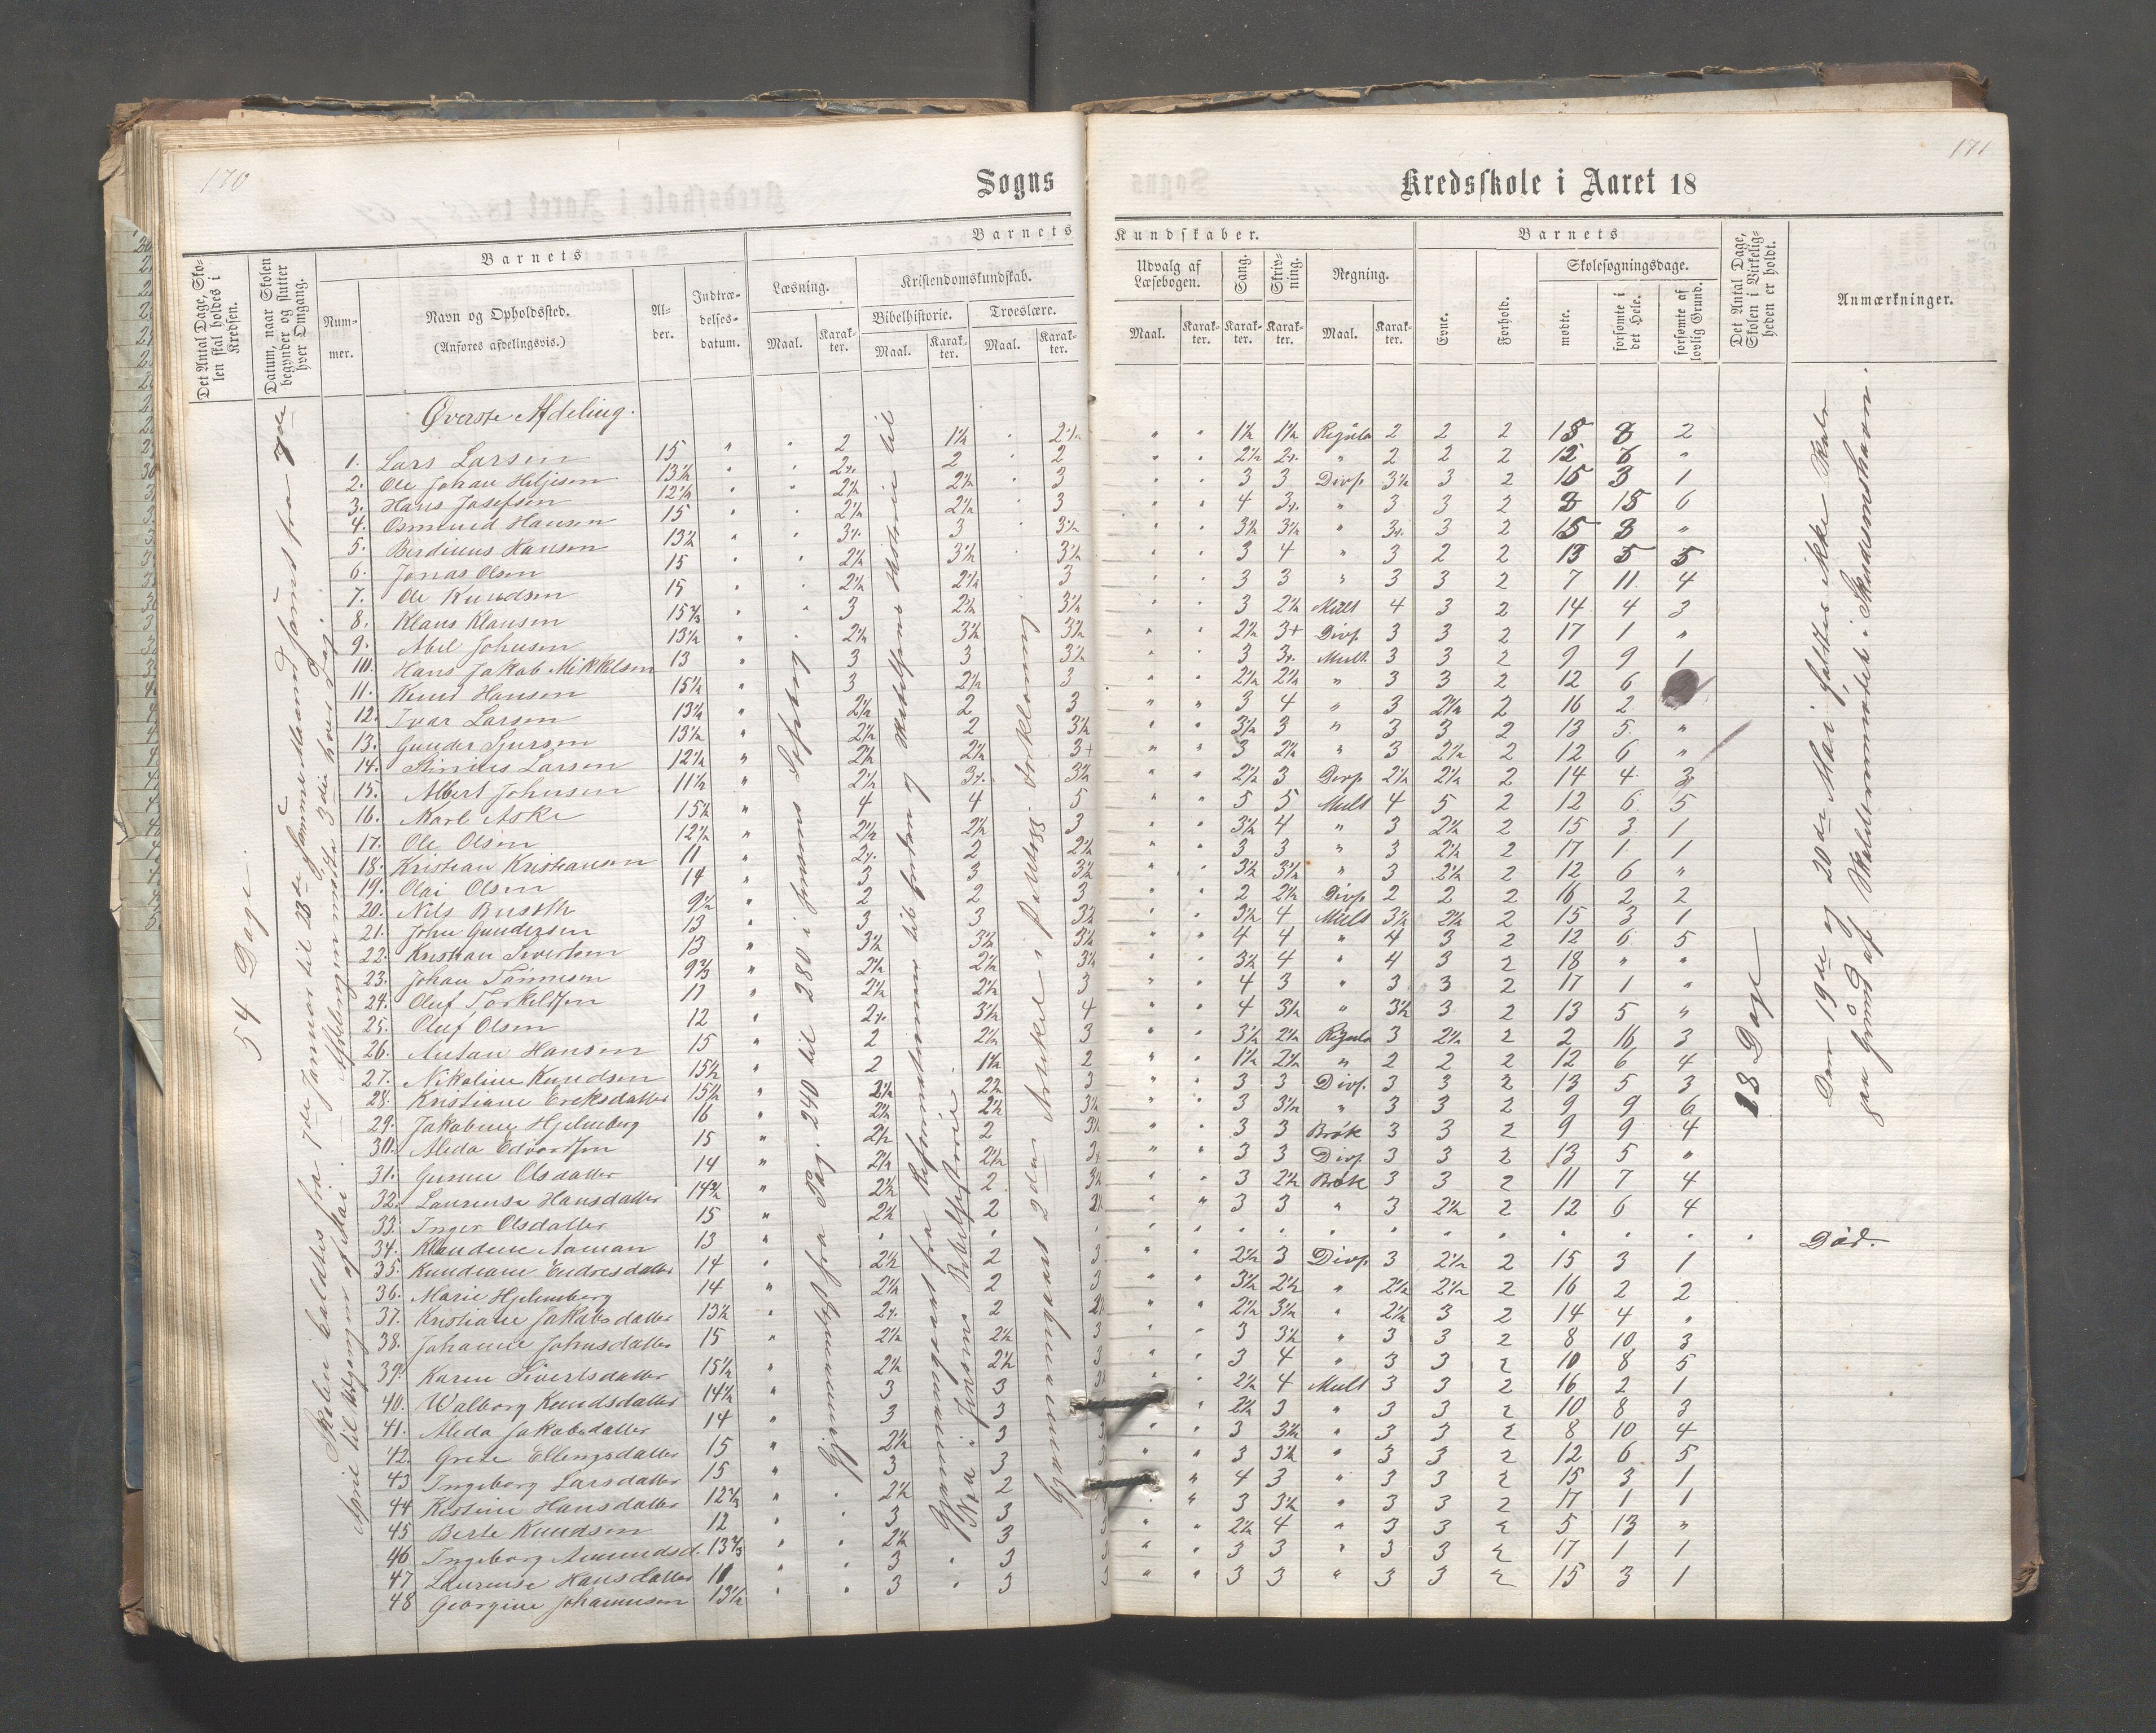 170
Sogns
Det Antal Dage, Sko-
len skal holdes i
Kredsen.
Datum, naar Skolen
begynder og slutter
hver Omgang.
Barnets
Num-
mer.
Navn og Opholdssted.
(Anføres afdelingsvis.)
Al-
der.
Indtræ-
delses-
datum.
Barnets
Læsning.
Maal.
Karak-
ter.
Kristendomskundskab.
Bibelhistorie.
Maal.
Karak-
ter.
Troeslære.
Maal.
Karak-
ter.
54 Dage.
Øverste Afdeling.
1. Lars Larsen 15 " 2 1½ 2½
2. Ole Johan Hiljesen 13½ 2 2
3. Hans Josefsen 12½ 2½ 2½ 3
4. Osmund Hansen 15 2½ 2½ 3
5. Berdinus Hansen 13½ 3 3½
6. Jonas Olsen 15 2½ 3½ 3½
7. Ole Knudsen 15 2½ 2½ 3
8. Klaus Klausen 3 2½ 3½
9. Abel Johnsen 13½ 2½ 3½ 3½
10. Hans Jakob Mikkelsen 13 3 3 3½
11. Knut Hansen 15½ 3 2½ 3
12. Ivar Larsen 13½ 2½ 2 3
13. Gunder Sjursen 13½ 2½ 2 3½
14. Larsen 12½ 2½ 2½ 3+
15. Albert Johnsen 11½ 2½ 3½
16. Karl Aske 15½ 4 4 5
17. Ole Olsen 12½ 2½ 2½ 3
18. Kristian Kristiansen 11 2 2½
19. Olai Olsen 14 3 3 3½
20. Nils Busoth 9½ 2 2 3
21. John Gundersen 13 3 3 3½
22. Kristian Sivertsen 13 3½ 3½ 3½
23. Johan Tønnesen 9⅔ 2½ 2½ 3½
24. Oluf Torkildsen 11 2½ 2½ 3
25. Oluf Olsen 12 3½ 4
26. Antan Hansen 15 2 2½ 3
27. Nikoline Knudsen 15½ 2 1½ 2
28. Kristiane Ereksdatter 15½ 2½ 2½ 3
29. Jakobine Hjelmberg 16 2½ 2½ 3½
30. Aleda Edvardsen 15 2½ 2 3½
31. Gunne Olsdatter 14 2½ 2½
32. Laurense Hansdatter 14¾ 2½ 2 3½
33. Inger Olsdatter 15 2½ 2
34. Klaudine Aaman 13
35. Kundiane Endresdatter 14 2½ 2 3
36. Marie Hjelmberg 14 2½ 2 3
37. Kristiane Jakobsdatter 13½ 2
38. Johanne Johnsdatter 15 2½ 2½ 3
39. Karen Sivertsdatter 15½ 2½ 2½ 3
40. Walborg Knudsdatter 14½ 3 3
41. Aleda Jakobsdatter 14 3 3
42. Grete Ellingsdatter 15 2½ 3
43 Ingeborg Larsdatter 15 3 3
44 Kistine Hansdatter 2½ 2
45 Berte Knudsen 12 3 3
46 Ingeborg Amundsd. 13⅔ 2½ 3
47 Laurense Hansdatter 11 3 3
48 Georgine Johannesen 13½ 3 3
Skolen holdtes fra 7de Januar til 28de samme Maaned samt fra 7de
April til Udgangen af Mai. Afdelingen mødte 3die hver Dag.
Gjennemgaaet fra Pag. 240 til 280 i Jensens Læsebog
Gjennemgaaet fra Reformationen til Enden og Bibelhistorie til
Gjennemgaaet 2den Artikel i Forklaring
171
Kredsskole i Aaret 18
Kundskaber.
Udvalg af
Læsebogen.
Maal.
Karak-
ter.
Sang.
Karak-
ter.
Skriv-
ning.
Karak-
ter.
Regning.
Maal.
Karak-
ter.
Barnets
Evne.
Forhold.
Skolesøgningsdage.
mødte.
forsømte i
det Hele.
forsømte af
lovlig Grund.
Det Antal Dage,
Skolen i Virkelig-
heden er holdt.
Anmærkninger.
" " 1½ 1½ Regula 2 2 2 15 8 2
" " 2½ " 2 2 2 12 6 "
3 3 Divs. 3½ 3 2 15 3 1
4 " 3 3 2 8 15 6
3½ 3½ " 3 2 15 8 "
3 4 " 3 2 2 13 5 5
3 3 " 3 3 2 7 11 4
3 2½ Mult 4 3 2 14 4 3
2½ 3+ Divs. 3 3 2 17 1 "
3 Mult. 3 3 2 9 9 1
2½ 2½ " 3 3 2 12 6
3 4 " 3 2½ 2 16 2
3½ 3 " 3 3 2 13 5 "
3 2½ " 3 2½ 2 12 6 "
2½ 3 Divs. 2½ 2½ 2 14 4 3
5 5 Mult 4 5 2 12 6 5
3½ 4 " 3 2½ 2 15 3 1
3 3 " 3 2½ 2 17 1 1
3½ 3½ " 3 2½ 2 12 6 "
2 2½ Divs. 2 2 2 16 2 2
3½ 4 Mult 3½ 2½ 2 15 3 1
4 4 " 4 3 2 12 6 5
3½ 4 " 4 3 2 18 " "
4 3 " 3 3 2 17 1 "
4 3½ " 3½ 3 2 13 5 "
3½ 2½ Regula 3 2½ 2 2 16 3
1½ 2½ " 2 2 2 12 6 4
3 3 Divs. 3 3 2 13 5 3
3 3½ " 3 3 2 9 9 6
3 3 Brøk 3 3 2 9 9 4
3 3 Divs. 3 3 2 13 5 "
3 2½ Brøk 3 3 2 11 7 4
3 3 " 3 2½ 2 12 6 4
Død.
2½ 3 Divs. 3 2½ 2 15 3 1
3½ 2½ " 2½ 2½ 2 16 2 2
2½ 3½ " 2½ 3 2 14 4 "
3 3½ " 3 3 2 8 10 3
3 4 " 3 3 2 10 8 5
2½ 4 Mult 3 3 2 16 2 1
2½ 3 " 3 3 2 10 8 3
3 3½ " 3 3 2 8 10 4
3 3½ " 3 3 2 12 6 5
4 3 " 3 3 2 15 3 1
3 3½ " 3 3 2 17 1 1
2½ 4 " 3 3 2 5 13 "
3 3 " 3 3 2 17 1 1
3 3 " 3 3 2 15 3 1
18 Dage
Den 19de og 20de Mai sattes ikke Skole
paa Grund af Skolelærermødet i Skudesneshavn.